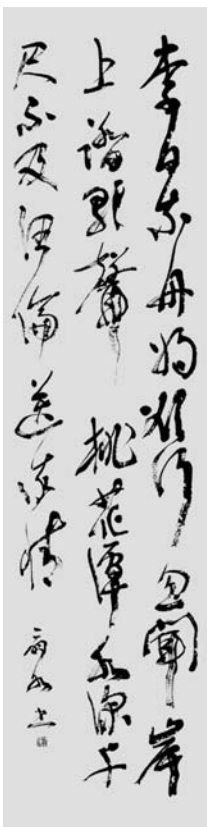 李白乘舟將欲行忽聞岸
上踏歌聲桃花潭水深千
尺不及汪倫送我情